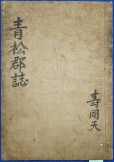 青松郡誌
壽同天